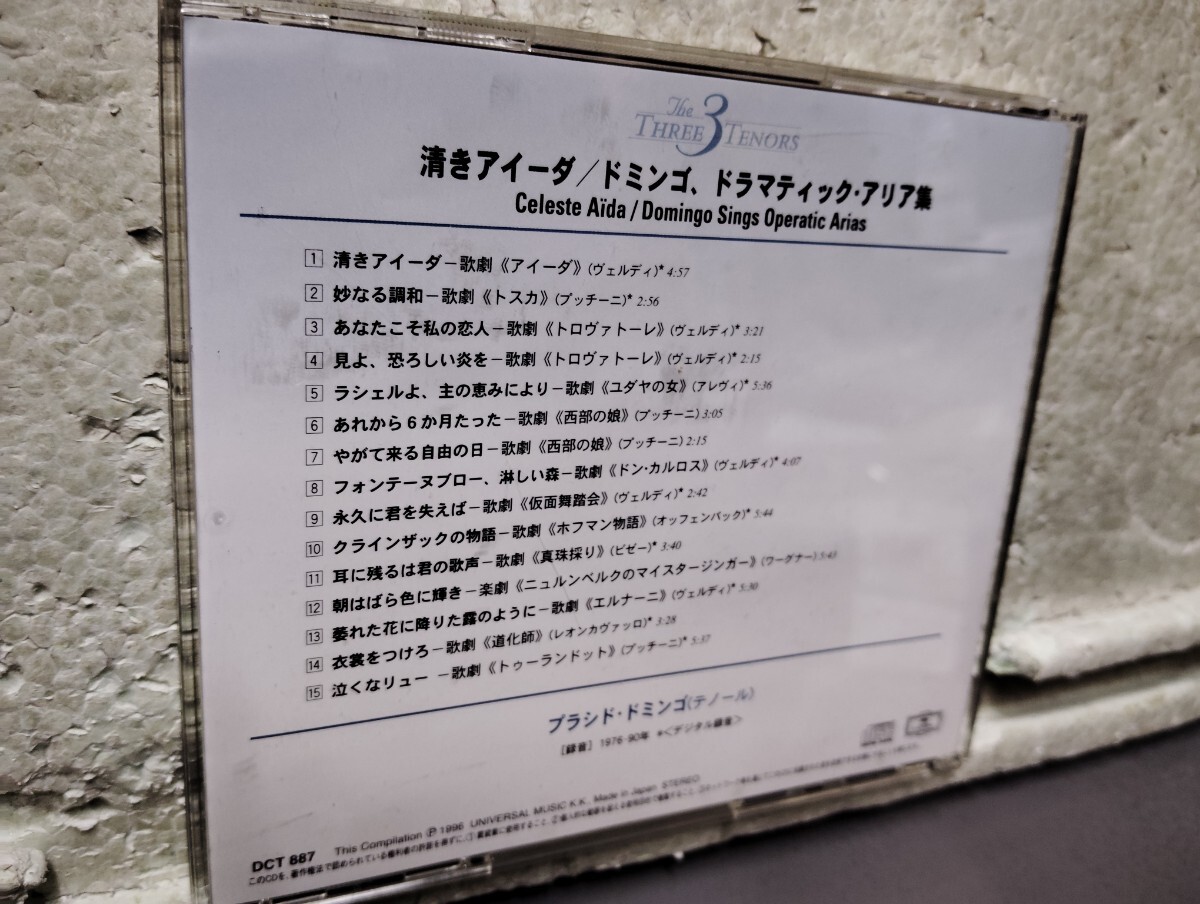 The
THREE 3 TENORS
清きアイーダ/ドミンゴ、ドラマティック・アリア集
Celeste Aïda / Domingo Sings Operatic Arias
1 清きアイーダ－歌劇《アイーダ》(ヴェルディ)* 4:57
2 妙なる調和－歌劇《トスカ》(プッチーニ)* 2:56
3 あなたこそ私の恋人－歌劇《トロヴァトーレ》(ヴェルディ)* 3:21
4 見よ、恐ろしい炎を－歌劇《トロヴァトーレ》(ヴェルディ)* 2:15
5 ラシェルよ、主の恵みにより－歌劇《ユダヤの女》(アレヴィ)* 5:36
6 あれから6か月たった－歌劇《西部の娘》(プッチーニ) 3:05
7 やがて来る自由の日－歌劇《西部の娘》(プッチーニ) 2:15
8 フォンテーヌブロー、淋しい森－歌劇《ドン・カルロス》(ヴェルディ)* 4:07
9 永久に君を失えば－歌劇《仮面舞踏会》(ヴェルディ)* 2:42
10 クラインザックの物語－歌劇《ホフマン物語》(オッフェンバック)* 5:44
11 耳に残るは君の歌声－歌劇《真珠採り》(ビゼー)* 3:40
12 朝はばら色に輝き－楽劇《ニュルンベルクのマイスタージンガー》(ワーグナー) 5:43
13 萎れた花に降りた露のように－歌劇《エルナーニ》(ヴェルディ)* 5:30
14 衣裳をつけろ－歌劇《道化師》(レオンカヴァッロ)* 3:28
15 泣くなリュー －歌劇《トゥーランドット》(プッチーニ)* 5:37
プラシド・ドミンゴ(テノール)
[録音] 1976-90年 *<デジタル録音>
DCT 887 This Compilation Ⓟ 1996 UNIVERSAL MUSIC K.K. Made in Japan STEREO
このCDを、著作権法で認められている権利者の許諾を得ずに、①賃貸業に使用すること、②個人的な範囲を超える使用目的で複製すること、